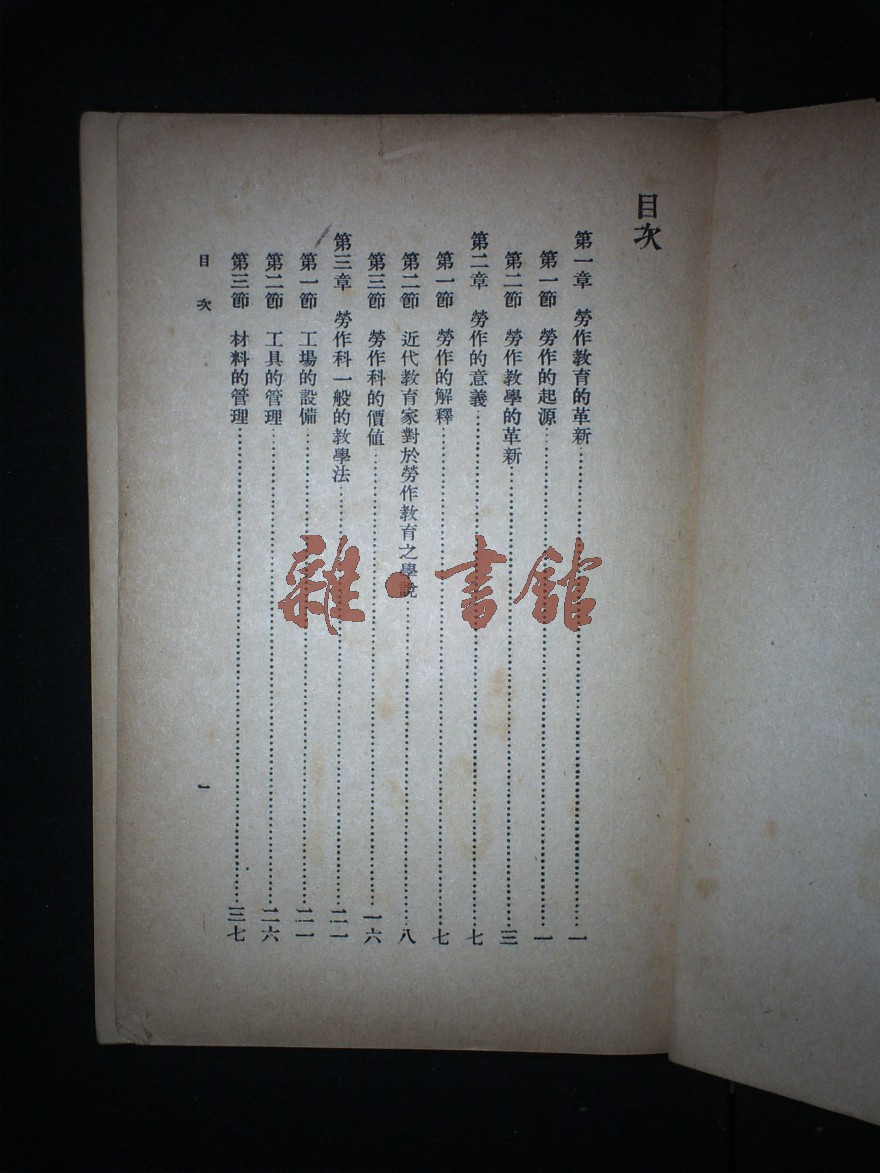 目次
第一章　勞作教育的革新……一
第一節　勞作的起源……一
第二節　勞作教學的革新……三
第二章　勞作的意義……七
第一節　勞作的解釋……七
第二節　近代教育家對於勞作教育之學說……八
第三節　勞作科的價值……一六
第三章　勞作科一般的教學法……二一
第一節　工場的設備……二一
第二節　工具的管理……二六
第三節　材料的管理……三七
目次　一
雜·書館